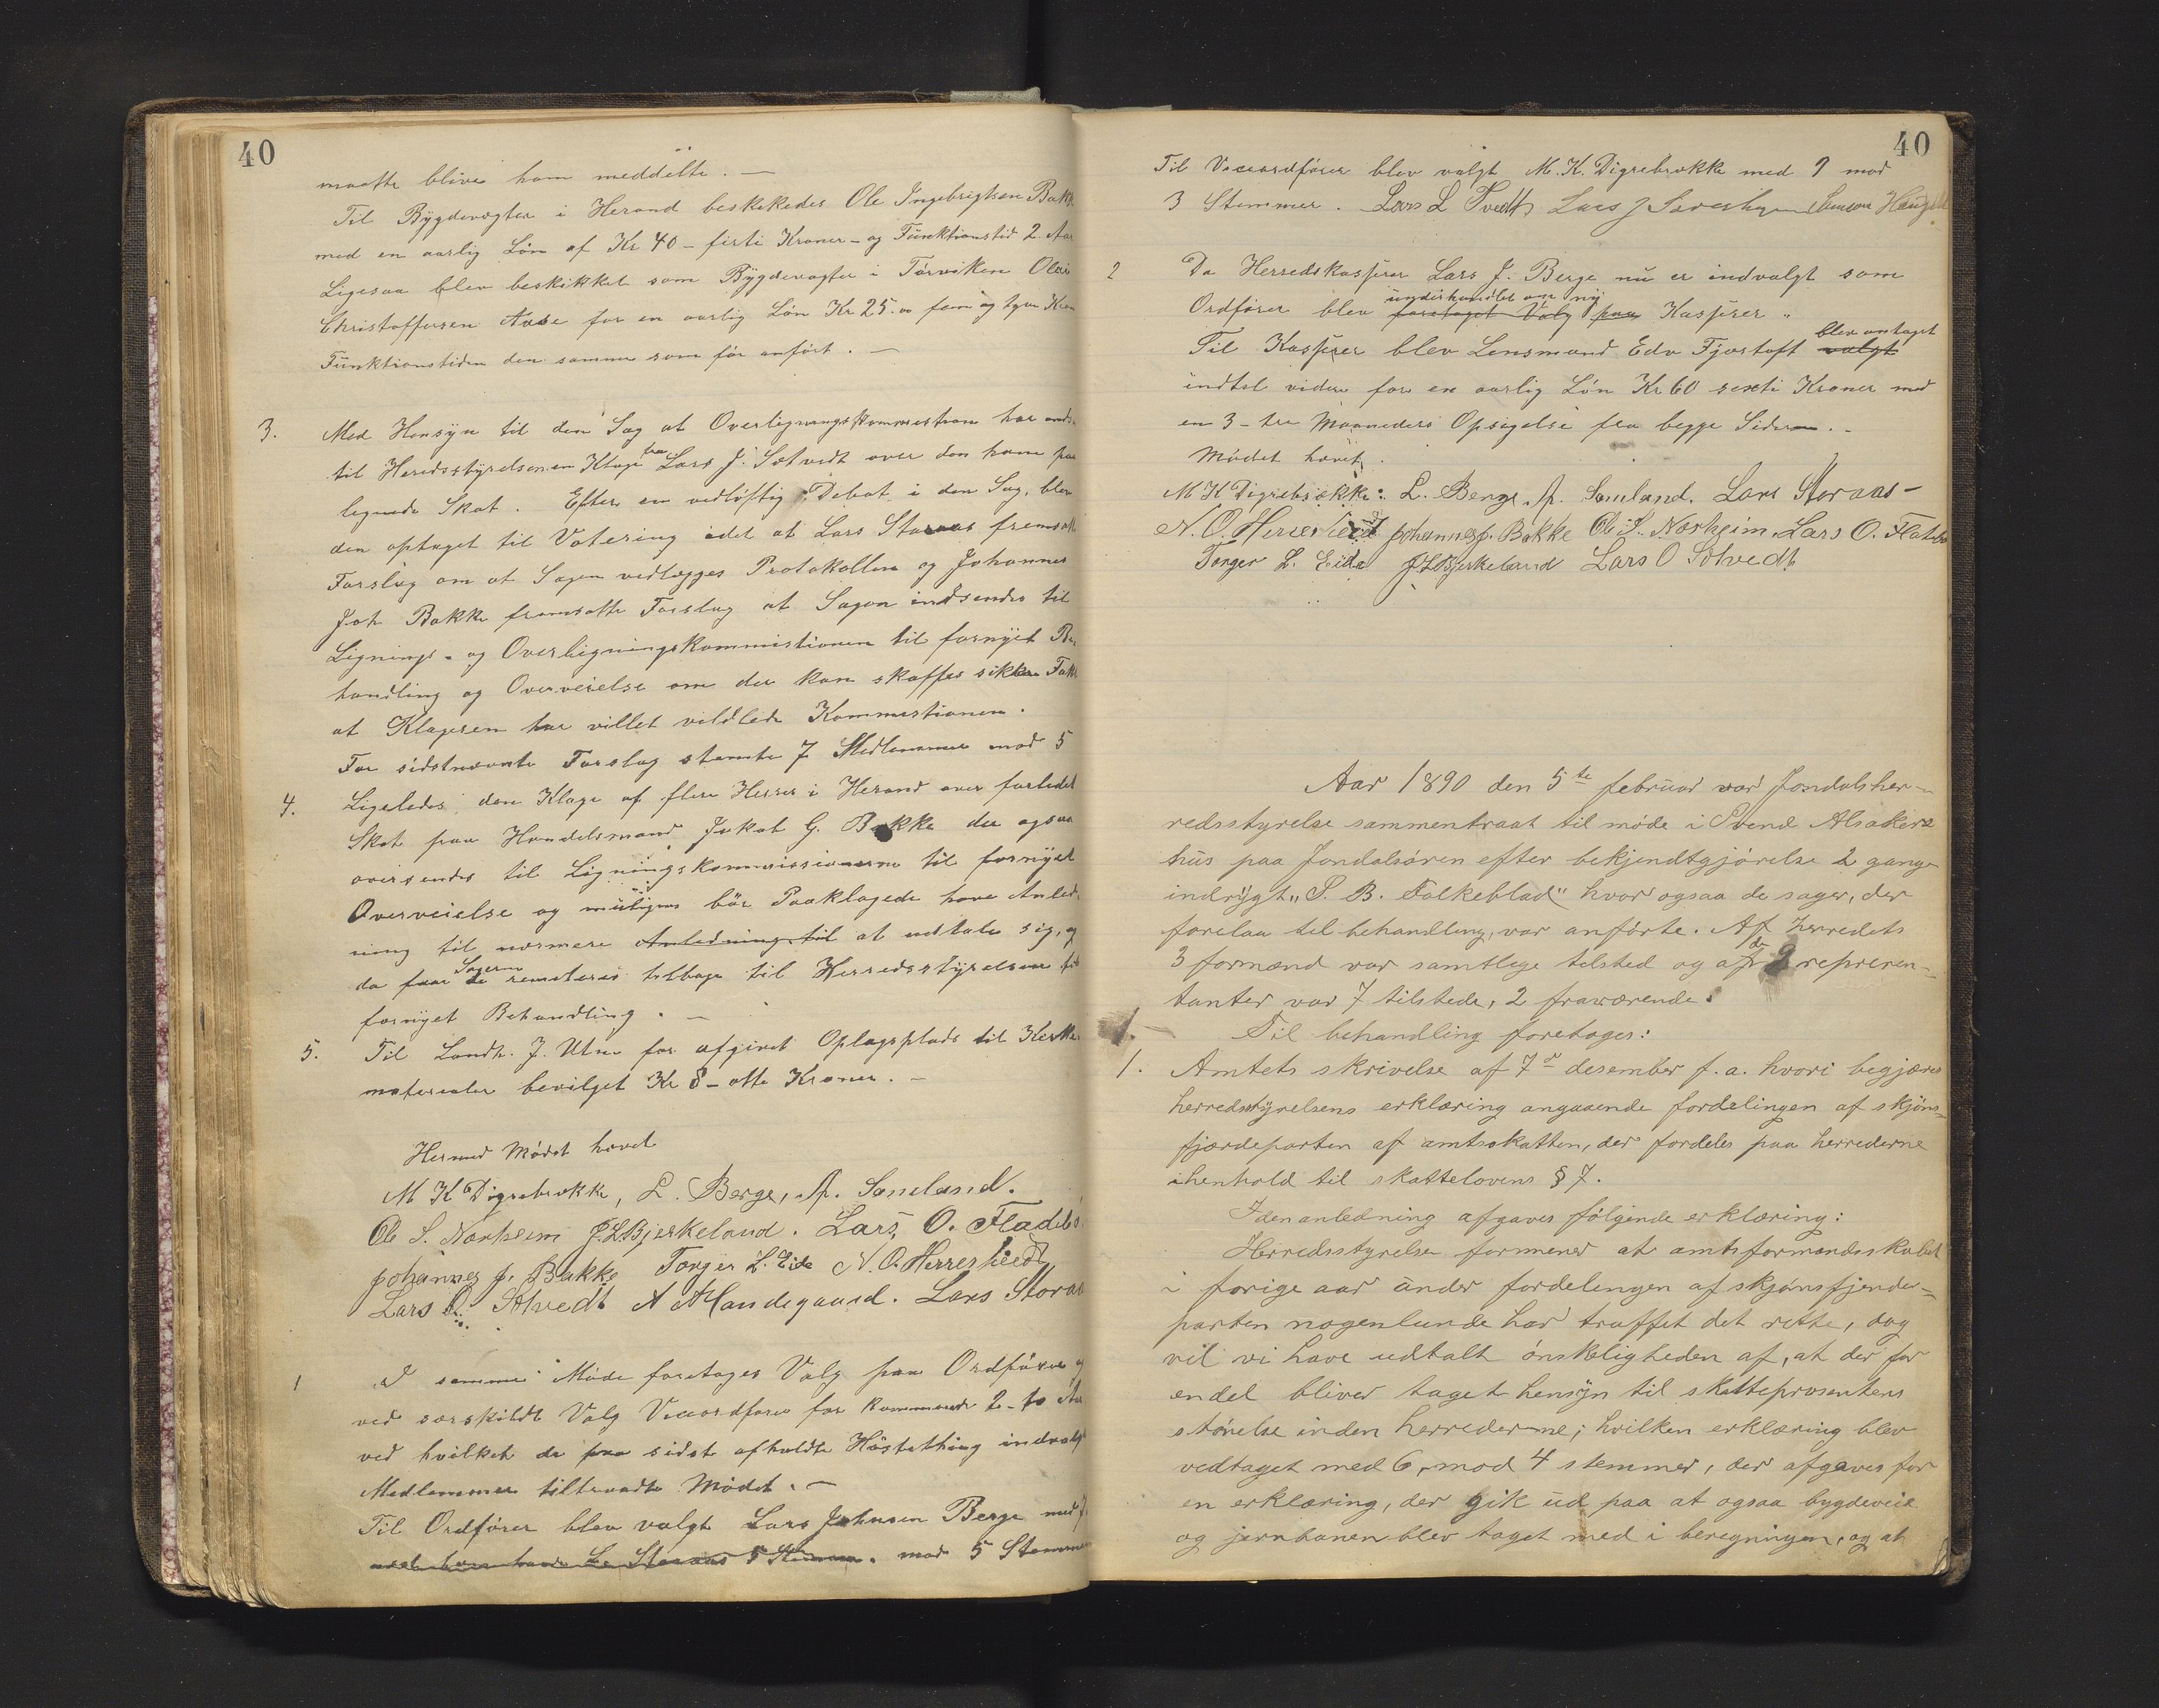 40
maatte blive ham meddelte. —
Til Bygdevægter i Herand beskikedes Ole Ingebrigtsen Bakk
med en aarlig Løn af Kr 40 – firti Kroner – og Funktionstid 2. Aar
Ligesaa blev beskikket som Bygdevægter i Tørviken
Christoffersen Aase for en aarlig Løn Kr 25.00 fem og tyve Kron
Funktionstiden den samme som før anført. —
3. Med Hensyn til den Sag at Overligningskommistion har
til Heredsstyrelsen en Klage fra Lars J. Sætvedt over den ham paa
lignede Skat. Efter en vedløftig Debat i den Sag, blev
den optaget til Votering idet at Lars Storaas fremsatte
Forslag om at Sagen vedlægges Protokollen og Johannes
Joh Bakke fremsatte Forslag at Sagen indsendes til
Lignings- og Overligningskommistionen til fornyet Be-
handling og Overveielse om der kan skaffes sikkre Fakt
at Klageren har villet vildlede Kommistionen.
For sidstnævnte Forslag stemte 7 Medlemmer mod 5
4. Ligeledes den Klage af flere Herrer i Herand over forledet
Skat paa Handelsmand Jakob G. Bakke der ogsaa
oversendes til Ligningskommissionerne til fornyet
Overveielse og muligens bør Paaklagede have Anled-
ning til nærmere Anledning til at udtale sig, og
da faar Sagerne de remitteres tilbage til Herredsstyrelsen til
fornyet Behandling. —
5. Til Landh. J. Utne for afgivet Oplagsplads til Kirke
materialer bevilget Kr 8 – otte Kroner. —
Hermed Mødet hævet
M K Digrebrække, L. Berge, A. Samland.
Ole S. Nærheim J.L. Bjerkeland. Lars, O. Fladebø
Johannes J. Bakke Torger L. Eide N. O. Herrestvedt
Lars O. Sætvedt A A Handegaard. Lars Storaas
1 I samme Møde foretages Valg paa Ordfører og
ved særskildt Valg Viceordfører for kommende 2 – to Aar
ved hvilket de paa sidst afholdte Høstething indvalgte
Medlemmer tiltraadte Mødet. —
Til Ordfører blev valgt Lars Johnsen Berge med 7
mod 5 Stemmer
40
Til Viceordfører blev valgt M. K. Digrebrække med 9 mod
3 Stemmer. Lars L Tvedt Lars J
2 Da Herredskasserer Lars J. Berge nu er indvalgt som
Ordfører blev foretaget Valg paa underhandlet om ny Kasserer.
Til Kasserer blev Lensmand Edv Fjærtoft valgt blev antaget
indtil videre for en aarlig Løn Kr 60 sexti Kroner med
en 3 – tre Maaneders Opsigelse fra begge Sider. –
Mødet hævet.
M K Digrebrække. L. Berge. A. Samland. Lars Storaas –
N. O. Herrestvedt Johannes J. Bakke Ole S. Nærheim, Lars O. Flatebø
Torger L. Eide J L Bjerkeland Lars O Sætvedt
Aar 1890 den 5te februar var Jondalsher-
redsstyrelse sammentraat til møde i Svend Alsakers
hus paa Jondalsøren efter bekjendtgjørelse 2 gange
indrygt „S. B. Folkeblad" hvor ogsaa de sager, der
forelaa til behandling, var anførte. Af herredets
3 formænd var samtlige tilsted og af de 9 repræsen-
tanter var 7 tilstede, 2 fraværende.
1. Til behandling foretages:
1. Amtets skrivelse af 7de desember f. a. hvori begjæres
herredsstyrelsens erklæring angaaende fordelingen af skjøns-
fjærdeparten af amtsskatten, der fordeles paa herrederne
ihenhold til skattelovens § 7.
Idenanledning afgaves følgende erklæring:
Herredsstyrelsen formener at amtsformandsskabet
i forige aar under fordelingen af skjønsfjerde-
parten nogenlunde har truffet det rette, dog
vil vi have udtalt ønskeligheden af, at der for
endel bliver taget hensyn til skatteprosentens
størrelse inden herrederne; hvilken erklæring blev
vedtaget med 6, mod 4 stemmer, der afgaves for
en erklæring, der gik ud paa at ogsaa bygdeveie
og jernbanen blev taget med i beregningen, og at